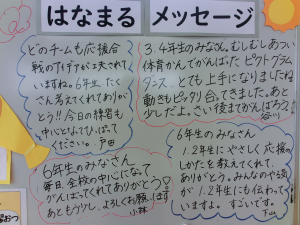 はなまる メッセージ
どのチームも応援合
戦のアイデアが工夫されて
いますね。6年生 たく
さん考えてくれてありが
とう!! 今日の練習も
中心となってひっぱって
ください。戸田
3.4年生のみなさん。むしむしあつい
体育かんでがんばった ピクトグラム
ダンス。とても上手になりましたね
動きもピッタリ合ってきました。あと
少しだよ。さい後までがんばろう
谷川
6年生のみなさん
毎日、全校の中心になって
がんばってくれてありがとう
あともう少し、よろしくお願いします
小林
6年生のみなさん
1.2年生にやさしく応援の
しかたを教えてくれて、
ありがとう。みんなのやる
が1.2年生にも伝わって
いますよ。すごいです。
下山